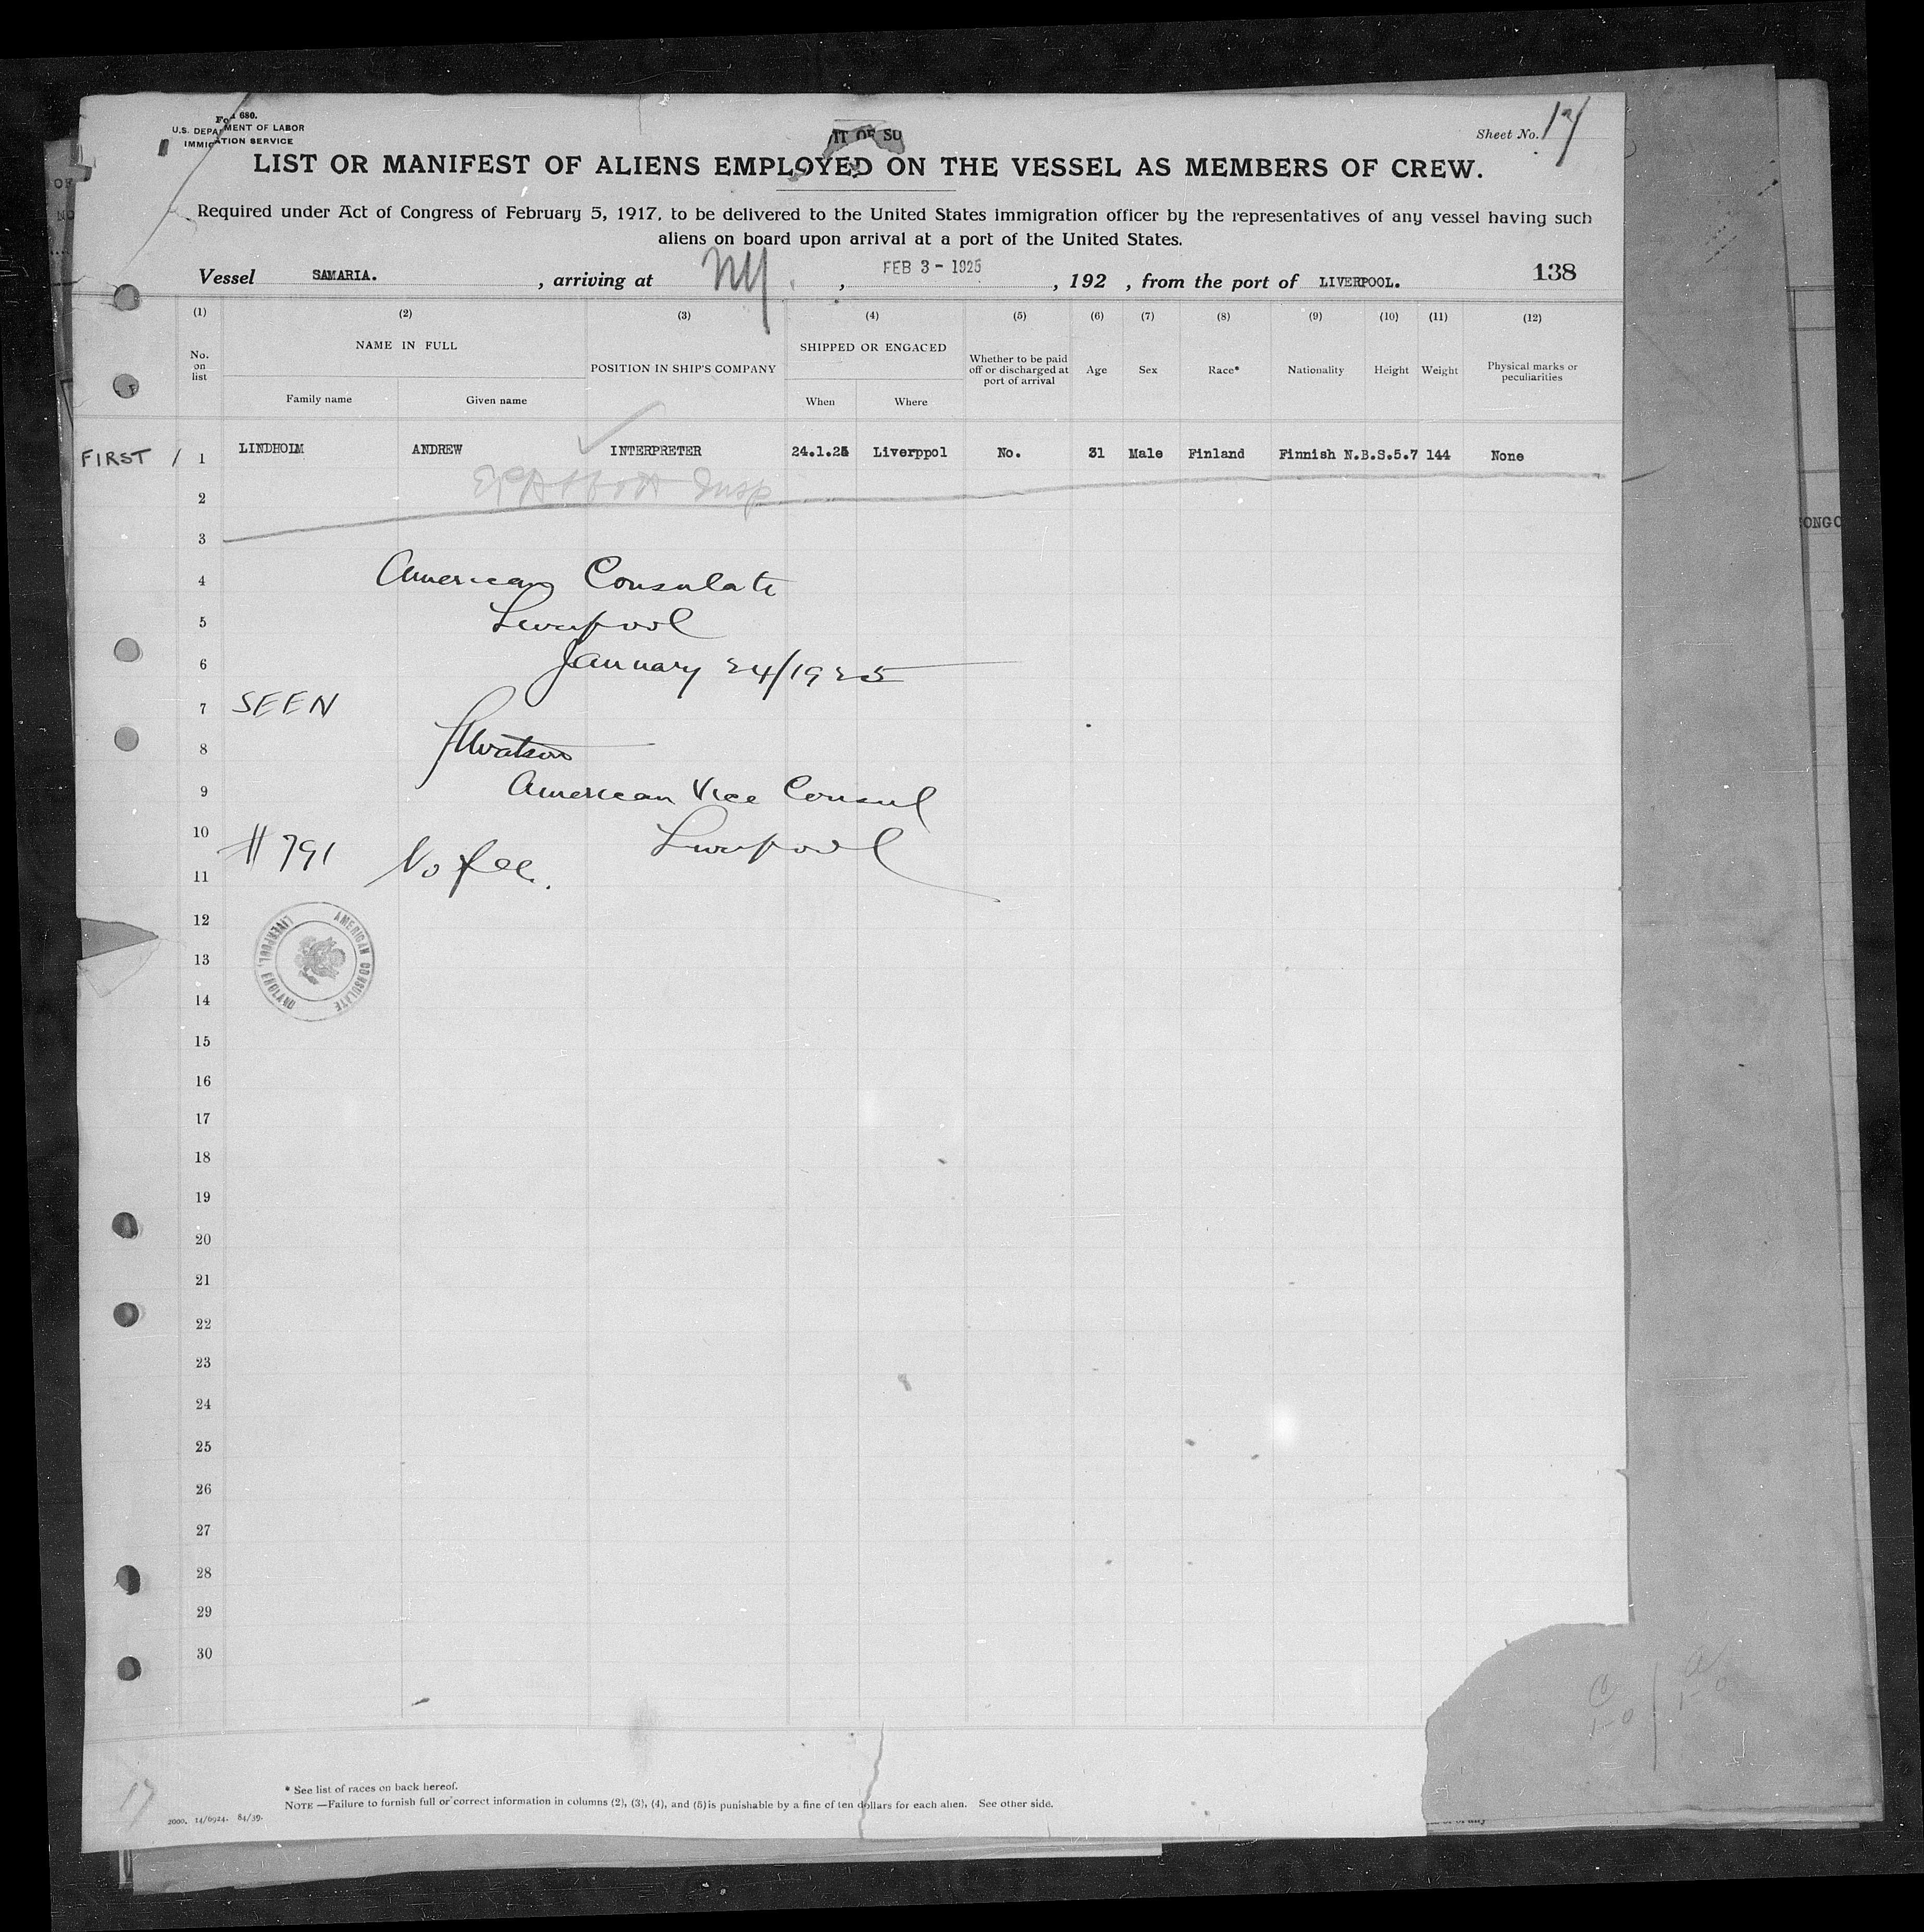 680.
U.S. DEPARTMENT OF LABOR
IMMIGRATION SERVICE
IT OF SU
Sheet No. 17
LIST OR MANIFEST OF ALIENS EMPLOYED ON THE VESSEL AS MEMBERS OF CREW.
Required under Act of Congress of February 5, 1917, to be delivered to the United States immigration officer by the representatives of any vessel having such
aliens on board upon arrival at a port of the United States.
Vessel SAMARIA. , arriving at NY , FEB 3 - 1925 , 192 , from the port of LIVERPOOL. 138
(1) (2) (3) (4) (5) (6) (7) (8) (9) (10) (11) (12)
No. on list NAME IN FULL Family name Given name POSITION IN SHIP'S COMPANY SHIPPED OR ENGAGED When Where Whether to be paid off or discharged at port of arrival Age Sex Race* Nationality Height Weight Physical marks or peculiarities
FIRST / 1 LINDHOLM ANDREW INTERPRETER 24.1.25 Liverppol No. 31 Male Finland Finnish N.B.S.5.7 144 None
2
3
4 American Consulate
5 Liverpool
6 January 24/1925
7 SEEN
8 Watson
9 American Vice Consul
10 Liverpool
# 791 No fee.
11
12
AMERICAN CONSULATE
LIVERPOOL, ENGLAND
13
14
15
16
17
18
19
20
21
22
23
24
25
26
27
28
29
30
* See list of races on back hereof.
NOTE —Failure to furnish full or correct information in columns (2), (3), (4), and (5) is punishable by a fine of ten dollars for each alien. See other side.
17
2000. 14/6924. 84/39.
ONGO